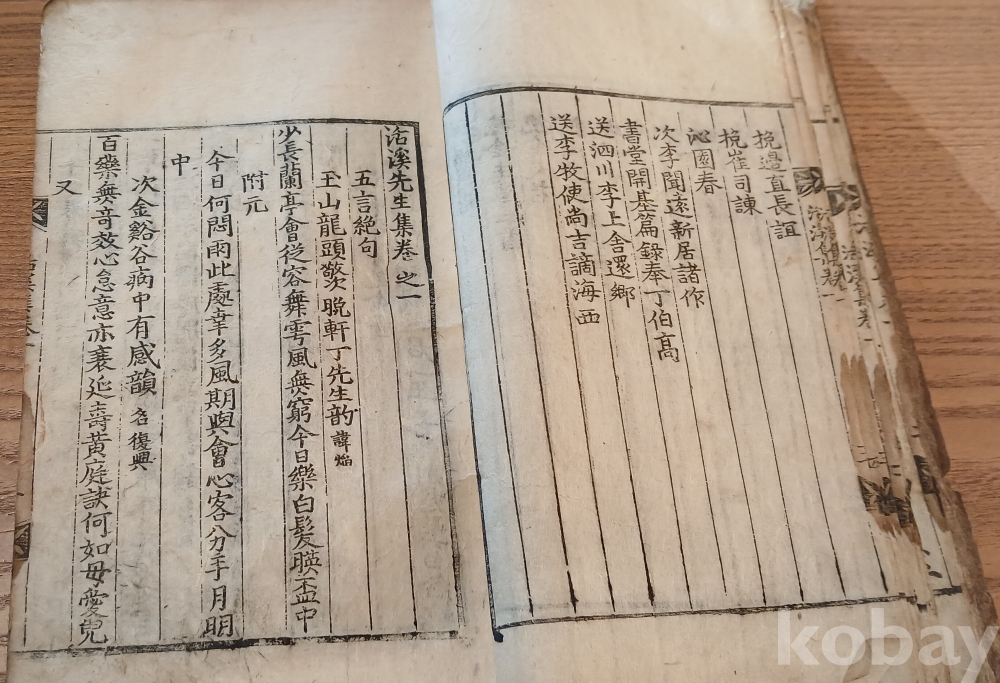 挽邊直長誼
挽崔司諫
沁園春
次李聞遠新居諸作
書堂開基篇錄奉丁伯高
送泗川李上舍還鄉
送李牧使尚吉謫海西
活溪先生集卷之一
五言絕句
玉山龍頭敬次晩軒丁先生韵 諱焰
少長蘭亭會從容舞雩風無窮今日樂白髮暎盃中
附元
今日何悶雨此處幸多風期與會心客分手月明
中
次金谿谷病中有感韻 名復興
百藥無奇效心怠意亦衰延壽黃庭訣何如母愛兒
又
kobay